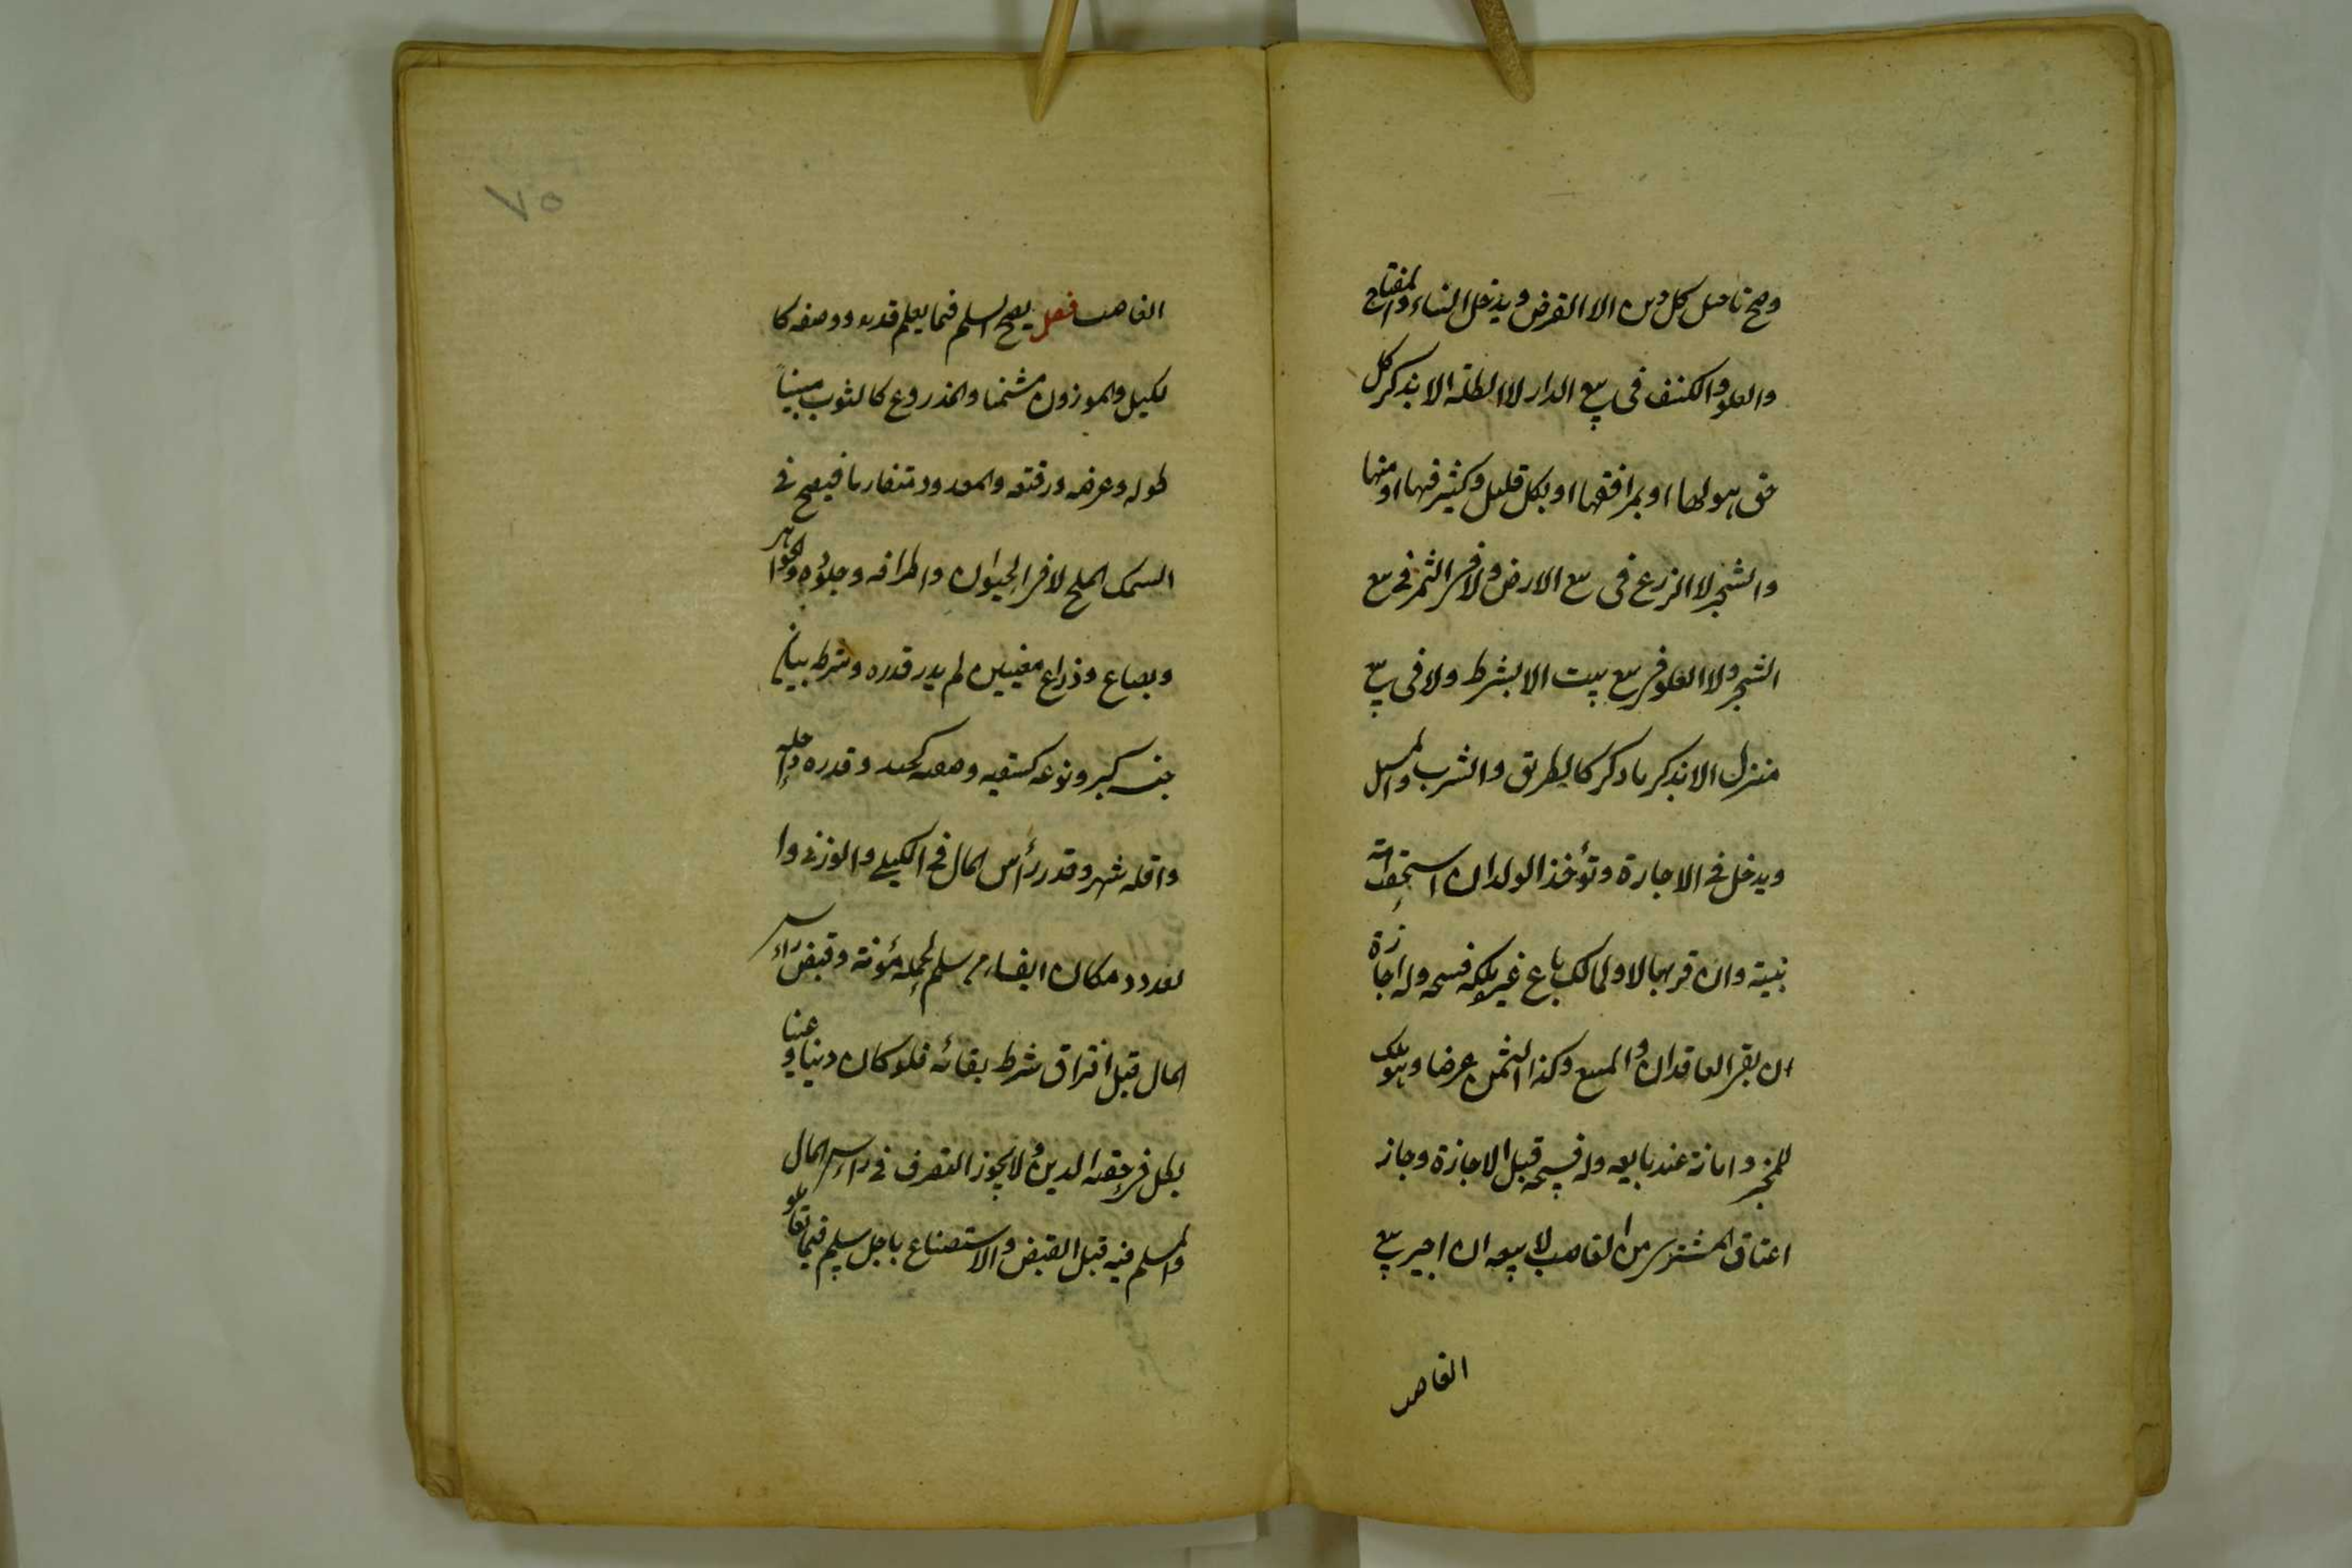 وصح تاجيل كل دين الا القرض ويدخل البناء والمفتاح
والعلو والكنف فى بيع الدار لا الظلة الا بذكر كل
حق هو لها او بمرافقها او بكل قليل وكثير فيها او منها
والشجر لا الزرع فى بيع الارض ولا الثمر فى بيع
الشجر ولا العلو فى بيع بيت الا بشرط ولا فى بيع
منزل الا بذكر ما ذكر كالطريق والشرب والمسيل
ويدخل فى الاجارة وتؤخذ الولد ان استحقت امته
ببينة وان قر بها لا ولمالك باع غير ملكه فسخه وله اجازة
ان بقى العاقدان والمبيع وكذا الثمن عرضا وهو ملك
للمجيز وامانة عند بايعه وله فسخه قبل الاجازة وجاز
اعتاق المشترى من الغاصب لا بيعه ان اجيز بيع
الغاصب
٧٥
الغاصب فصل يصح السلم فيما يعلم قدره ووصفه كا
لكيل والموزون مثمنا والمذروع كالثوب مبينا
طوله وعرضه ورقته والمعدود متقاربا فيصح فى
السمك المليح لا فى الحيوان واطرافه وجلوده والجواهر
وبصاع وذراع معينين لم يدر قدره وشرط بيان
جنسه كبر ونوعه كسقيه وصفته كجيد وقدره واجله
واقله شهر وقدر رأس المال فى الكيلى والوزنى وا
لعددى ومكان ايفاء مسلم لحمله مؤنة وقبض رأس
المال قبل افتراق شرط بقائه فلو كان دينا وعينا
بطل فى حصة الدين ولا يجوز التصرف فى راس المال
والمسلم فيه قبل القبض والاستصناع باجل سلم فيما تعاملو